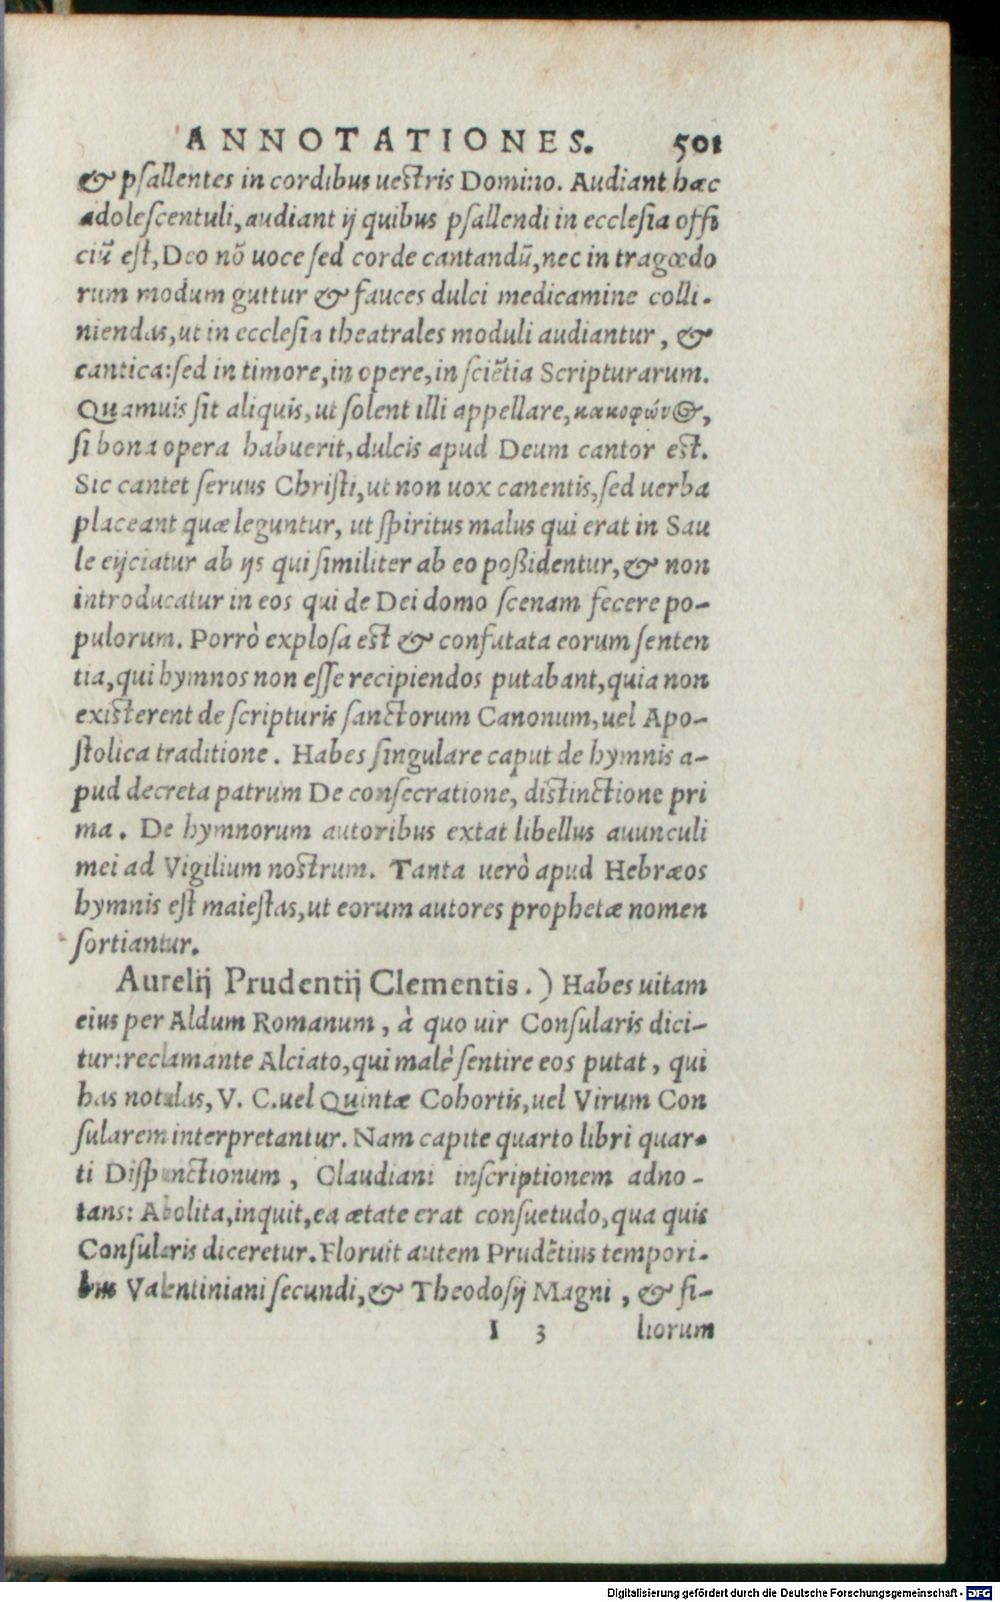 ANNOTATIONES. 501
& psallentes in cordibus uestris Domino. Audiant hæc
adolescentuli, audiant ij quibus psallendi in ecclesia offi
ciũ est, Deo nõ uoce sed corde cantandũ, nec in tragœdo
rum modum guttur & fauces dulci medicamine colli-
niendas, ut in ecclesia theatrales moduli audiantur, &
cantica: sed in timore, in opere, in sciẽtia Scripturarum.
Quamuis sit aliquis, ut solent illi appellare, κακοφώνος,
si bona opera habuerit, dulcis apud Deum cantor est.
Sic cantet seruus Christi, ut non uox canentis, sed uerba
placeant quæ leguntur, ut spiritus malus qui erat in Sau
le eijciatur ab ijs qui similiter ab eo poßidentur, & non
introducatur in eos qui de Dei domo scenam fecere po-
pulorum. Porrò explosa est & confutata eorum senten
tia, qui hymnos non esse recipiendos putabant, quia non
existerent de scripturis sanctorum Canonum, uel Apo-
stolica traditione. Habes singulare caput de hymnis a-
pud decreta patrum De consecratione, distinctione pri
ma. De hymnorum autoribus extat libellus auunculi
mei ad Vigilium nostrum. Tanta uerò apud Hebræos
hymnis est maiestas, ut eorum autores prophetæ nomen
sortiantur.
Aurelij Prudentij Clementis.) Habes uitam
eius per Aldum Romanum, à quo uir Consularis dici-
tur: reclamante Alciato, qui malè sentire eos putat, qui
has notulas, V. C. uel Quintæ Cohortis, uel Virum Con
sularem interpretantur. Nam capite quarto libri quar-
ti Dispunctionum, Claudiani inscriptionem adno-
tans: Abolita, inquit, ea ætate erat consuetudo, qua quis
Consularis diceretur. Floruit autem Prudẽtius tempori-
bus Valentiniani secundi, & Theodosij Magni, & fi-
I 3 liorum
Digitalisierung gefördert durch die Deutsche Forschungsgemeinschaft - DFG